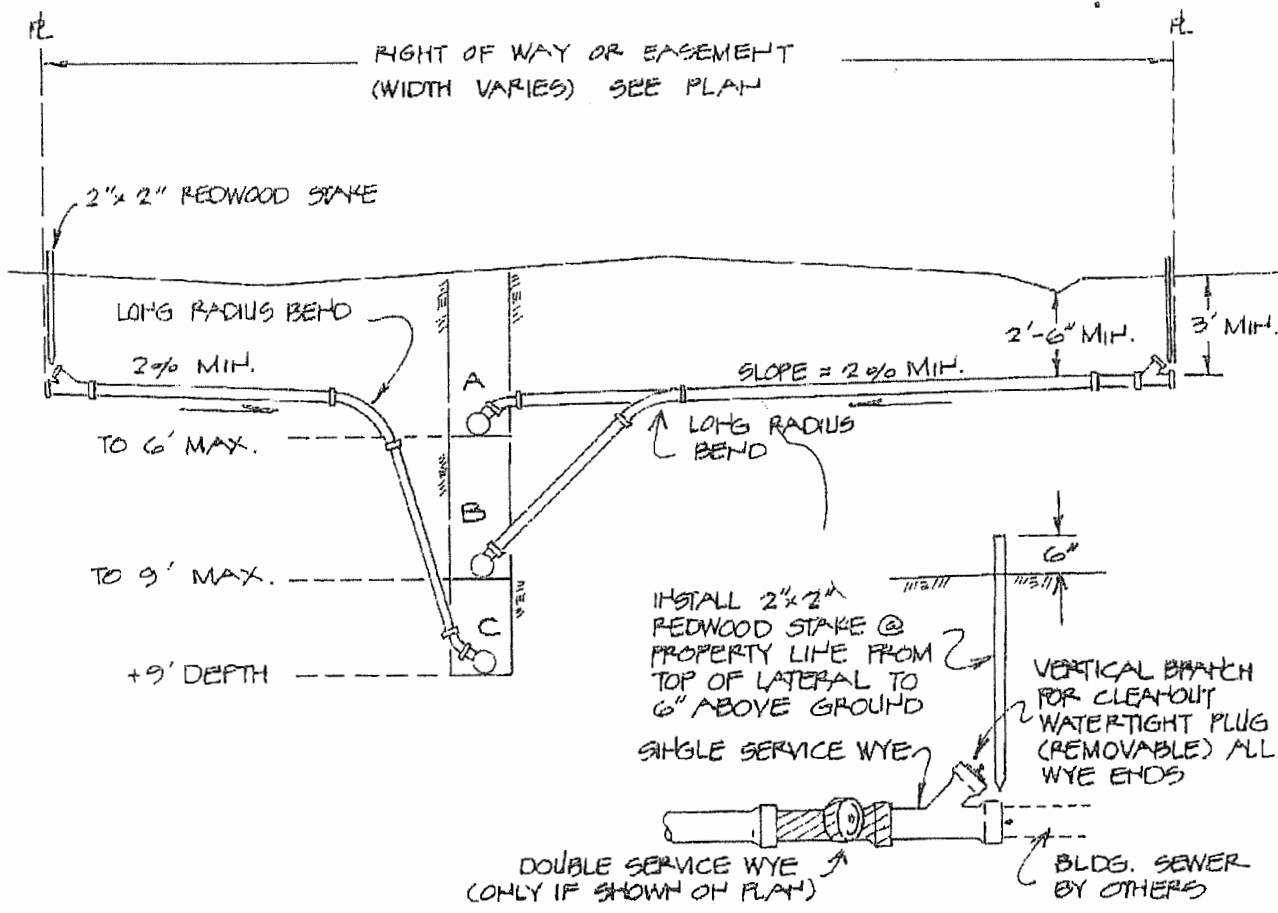 PL
PL
RIGHT OF WAY OR EASEMENT
(WIDTH VARIES) SEE PLAN
2"x 2" REDWOOD STAKE
LONG RADIUS BEND
2% MIN.
A
SLOPE = 2% MIN.
2'-6" MIN.
3' MIN.
TO 6' MAX.
LONG RADIUS
BEND
B
TO 9' MAX.
C
+9' DEPTH
6"
INSTALL 2"x 2"
REDWOOD STAKE @
PROPERTY LINE FROM
TOP OF LATERAL TO
6" ABOVE GROUND
VERTICAL BRANCH
FOR CLEANOUT
WATERTIGHT PLUG
(REMOVABLE) ALL
WYE ENDS
SINGLE SERVICE WYE
DOUBLE SERVICE WYE
(ONLY IF SHOWN ON PLAN)
BLDG. SEWER
BY OTHERS